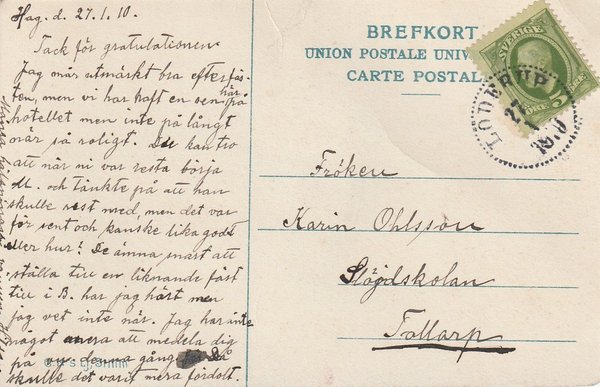 Hag. d. 27.1.10.
Tack för gratulationen.
Jag mår utmärkt bra efter fäs-
ten, men vi har haft en sen här på
hotellet men inte på långt
när så roligt. Du kan tro
att när ni var resta börja
de och tänkte på att han
skulle rest med, men det var
för sent och kanske lika godt
eller hur? De ämna snart att
ställa till en liknande fäst
till i B. har jag hört men
jag vet inte när. Jag har inte
något annat att meddela dig
på denna gång
skulle det varit mera fördolt.
BREFKORT
UNION POSTALE
CARTE POSTALE
SVERIGE
5 ÖRE
LÖDERUP
27 1 1910
Fröken
Karin Ohlsson
Slöjdskolan
Tollarp